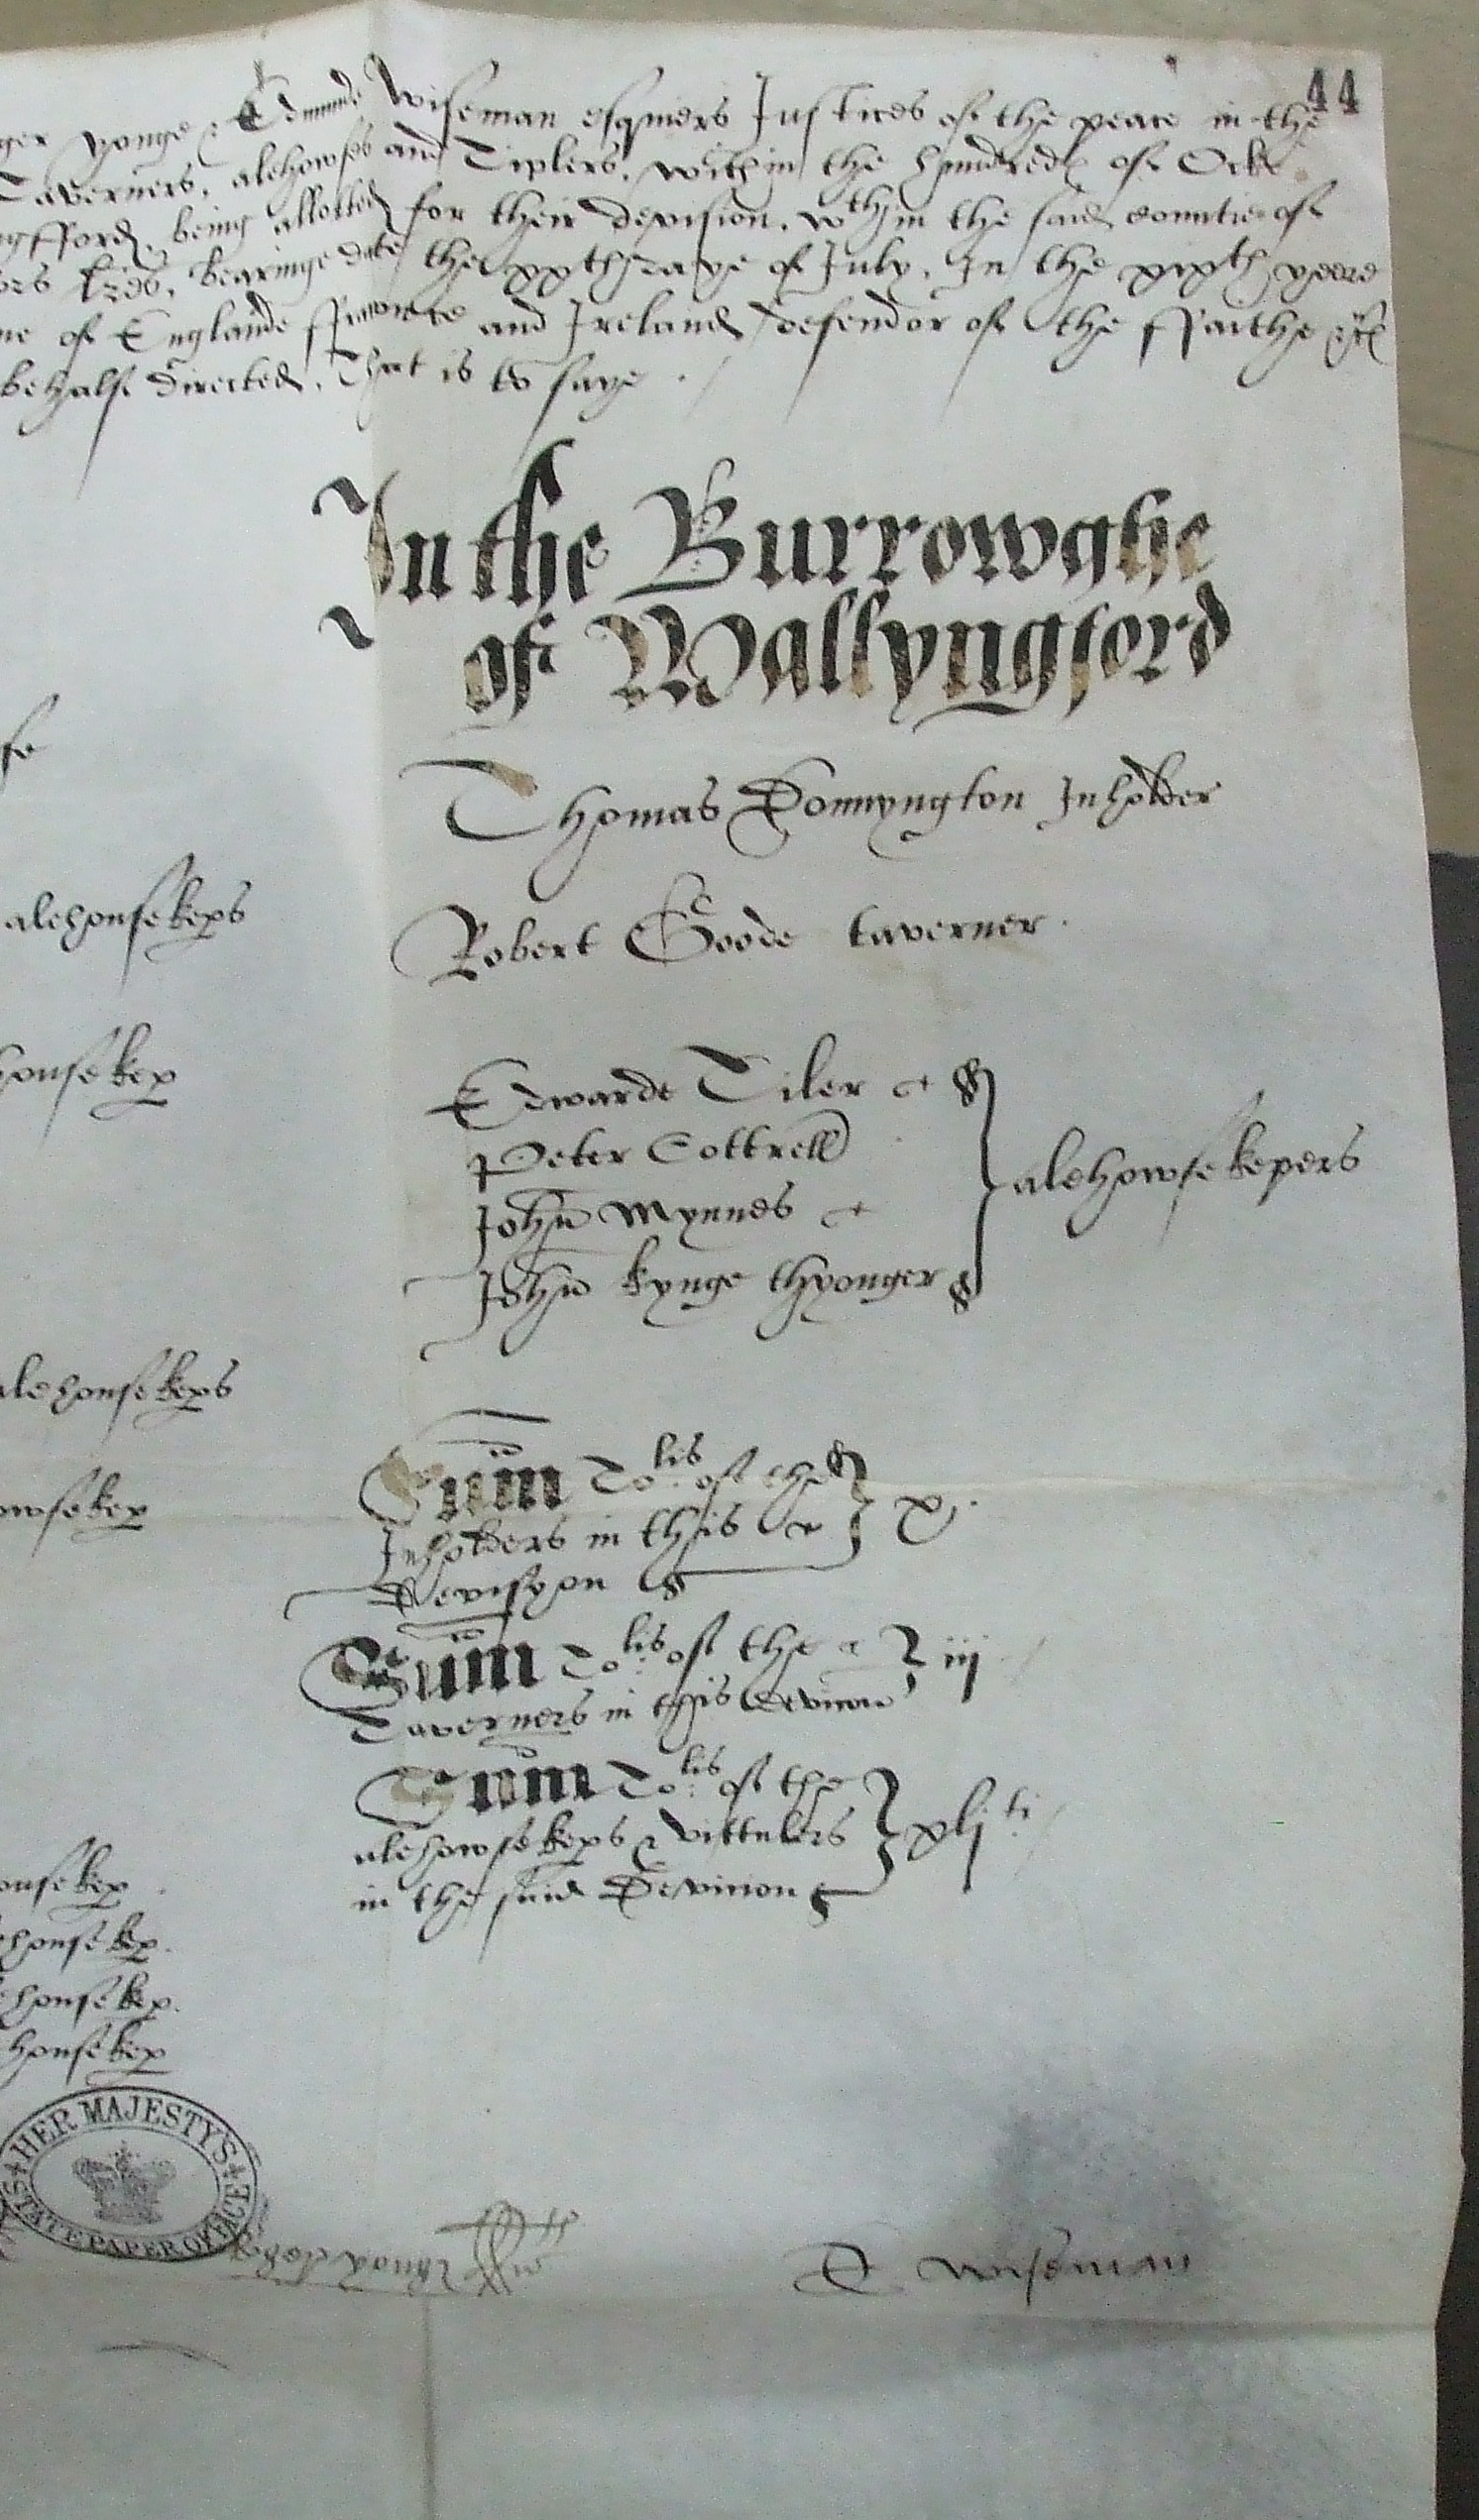 44
ger yonge & Edmunde Wiseman esquiers Justices of the peace in the
Taverners, alehowses and Tiplers, within the hundreds of Ocke
ngfford, being allotted for their devision, wthin the said countie of
ors lres, bearinge date the xxth daye of July, In the xixth yeare
ne of Englande ffraunce and Ireland, defendor of the ffaithe &c
behalf directed, That is to saye.
In the Burrowghe
of Wallyngford
Thomas Donnyngton Inholder
Robert Goode taverner.
alehousekeps
housekep
Edwarde Tiler
Peter Cottrell
John Mynnes
John kynge thyonger
alehowsekepers
alehousekeps
owsekep
Sum Tolis of the
Inholders in this
Devisyon
x.
Sum Tolis of the
Taverners in this devicion
iij
Sum Tolis of the
alehowsekeps & vittulers
in the said Devicion
xljti
ousekep.
housekep.
ehousekep.
housekep
HER MAJESTY'S
STATE PAPER OFFICE
Roger yonge
E wiseman